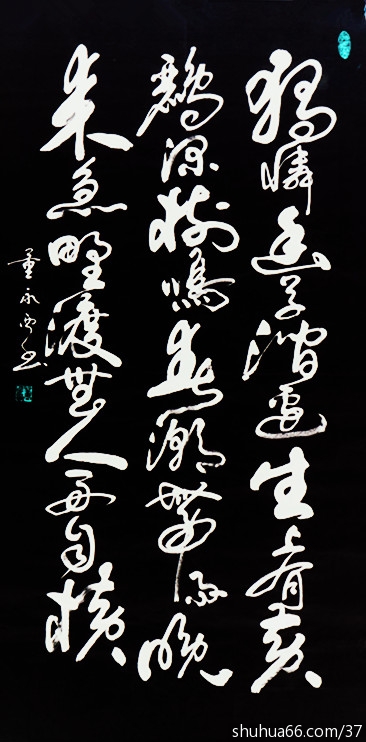 獨憐幽草澗邊生上有黃
鸝深樹鳴春潮帶雨晚
來急野渡無人舟自橫
董永
shuhua66.com/37